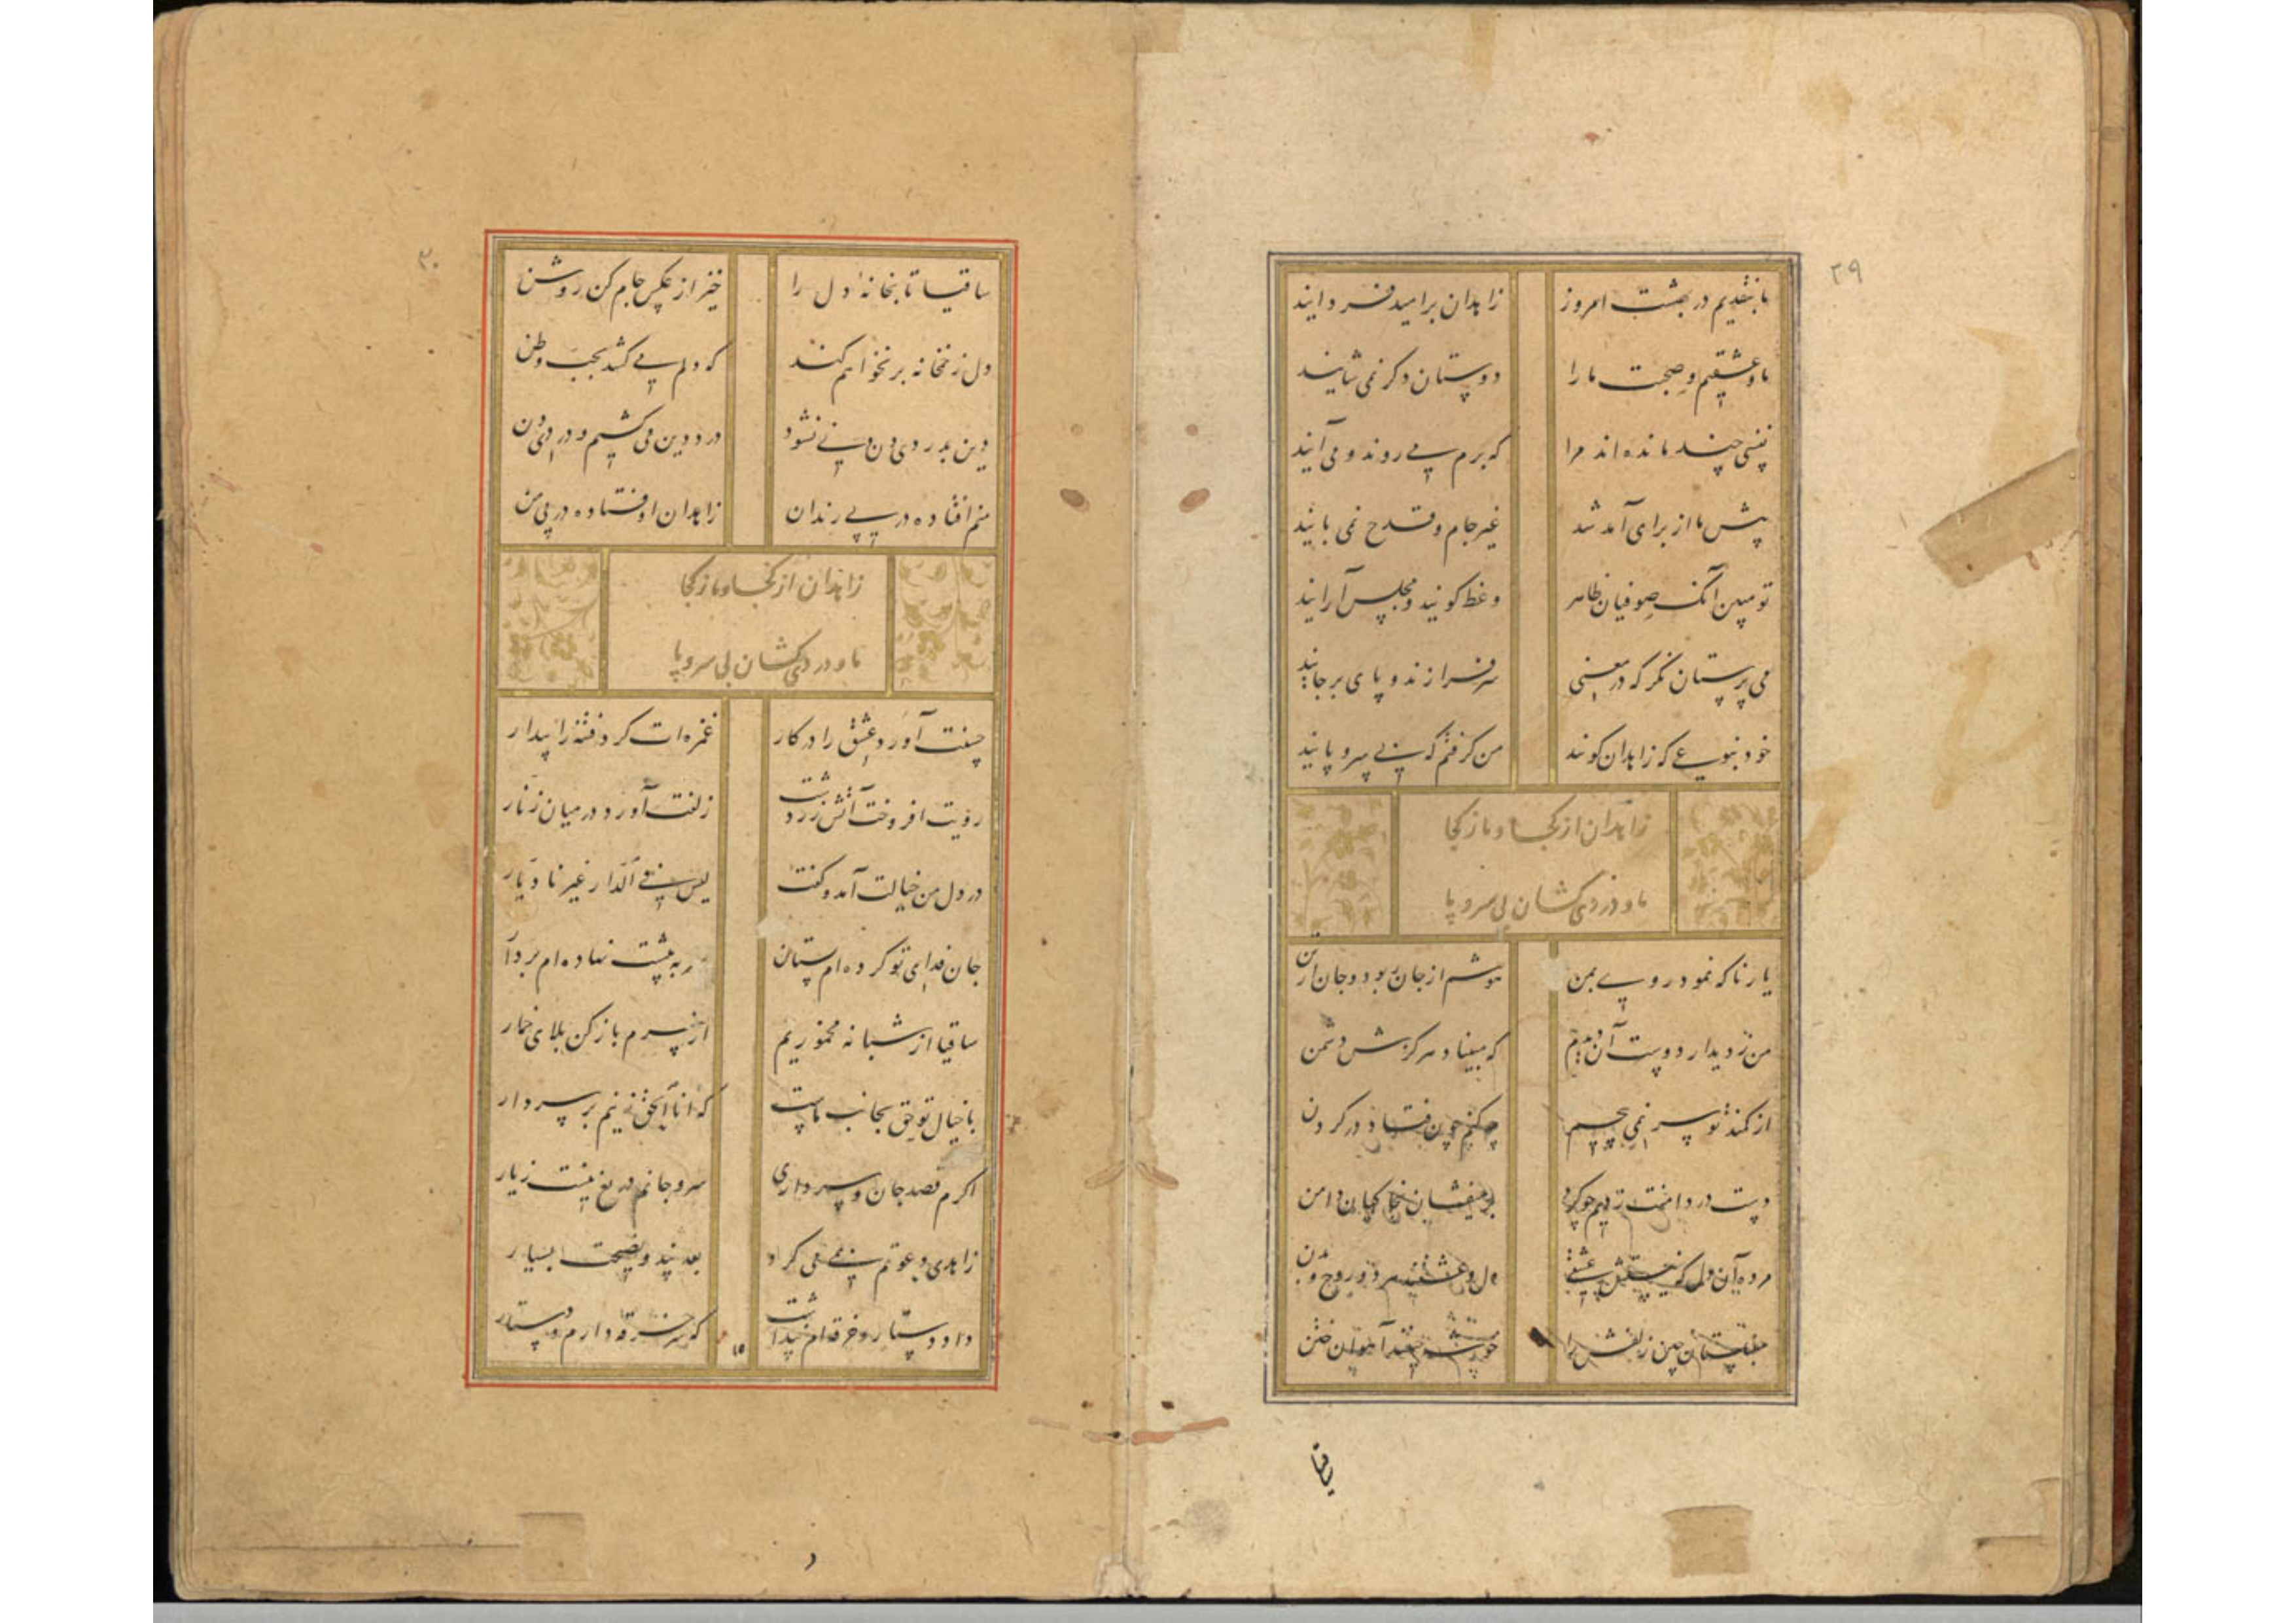 ۲۹
ما بنقدیم در بهشت امروز
زاهدان بر امید فردایند
ما و عشقیم و صحبت ما را
دوستان دگر نمی شایند
نفسی چند مانده اند مرا
که برم می روند و می آیند
پیش ما از برای آمد شد
غیر جام و قدح نمی بایند
تو مبین آنک صوفیان ظاهر
وعظ گویند و مجلس آرایند
می پرستان نگر که در معنی
سرفرازند و پای برجایند
خود نبویی که زاهدان گویند
من گرفتم که بی سر و پایند
زاهدان از کجا و ما ز کجا
ما و دردی کشان بی سر و پا
یار تا که نمود روی بمن
هوشم از جان ربود و جان از تن
من ز دیدار دوست آن دیدم
که مبیناد هرگزش دشمن
از کمند تو سر نمی پیچم
چکنم چون فتاد در گردن
دست در دامنت زدیم چو گرد
بر میفشان بخاکیان دامن
مرده آن دل که نیستش عشقی
دل و عشقند مرد و روح و بدن
چین زلفش را
آهوان ختن
ساقیا
۳۰
ساقیا تابخانهٔ دل را
خیز از عکس جام کن روشن
دل ز خمخانه بر نخواهم کند
که دلم می کشد بحب وطن
دین بدردی و دن نشود
درد دین می کشیم و دردی دن
منم افتاده در پی رندان
زاهدان اوفتاده در پی من
زاهدان از کجا و ما ز کجا
ما و دردی کشان بی سر و پا
چشمت آورد عشق را در کار
غمزه ات کرد فتنه را بیدار
رویت افروخت آتش زردشت
زلفت آورد در میان زنار
در دل من خیالت آمد و گفت
لیس فی الدار غیرنا دیار
جان فدای تو کرده ام بستان
سر به پیشت نهاده ام بردار
ساقیا از شبانه مخموریم
از سرم باز کن بلای خمار
با خیال تو حق بجانب ماست
که انا الحق زنیم بر سر دار
اگرم قصد جان و سر داری
سر و جانم دریغ نیست ز یار
زاهدی دعوتم همی کرد
بعد پند و نصیحت بسیار
داد دستار و خرقه ام پنداشت
که سر خرقه دارم و دستار
۱۵